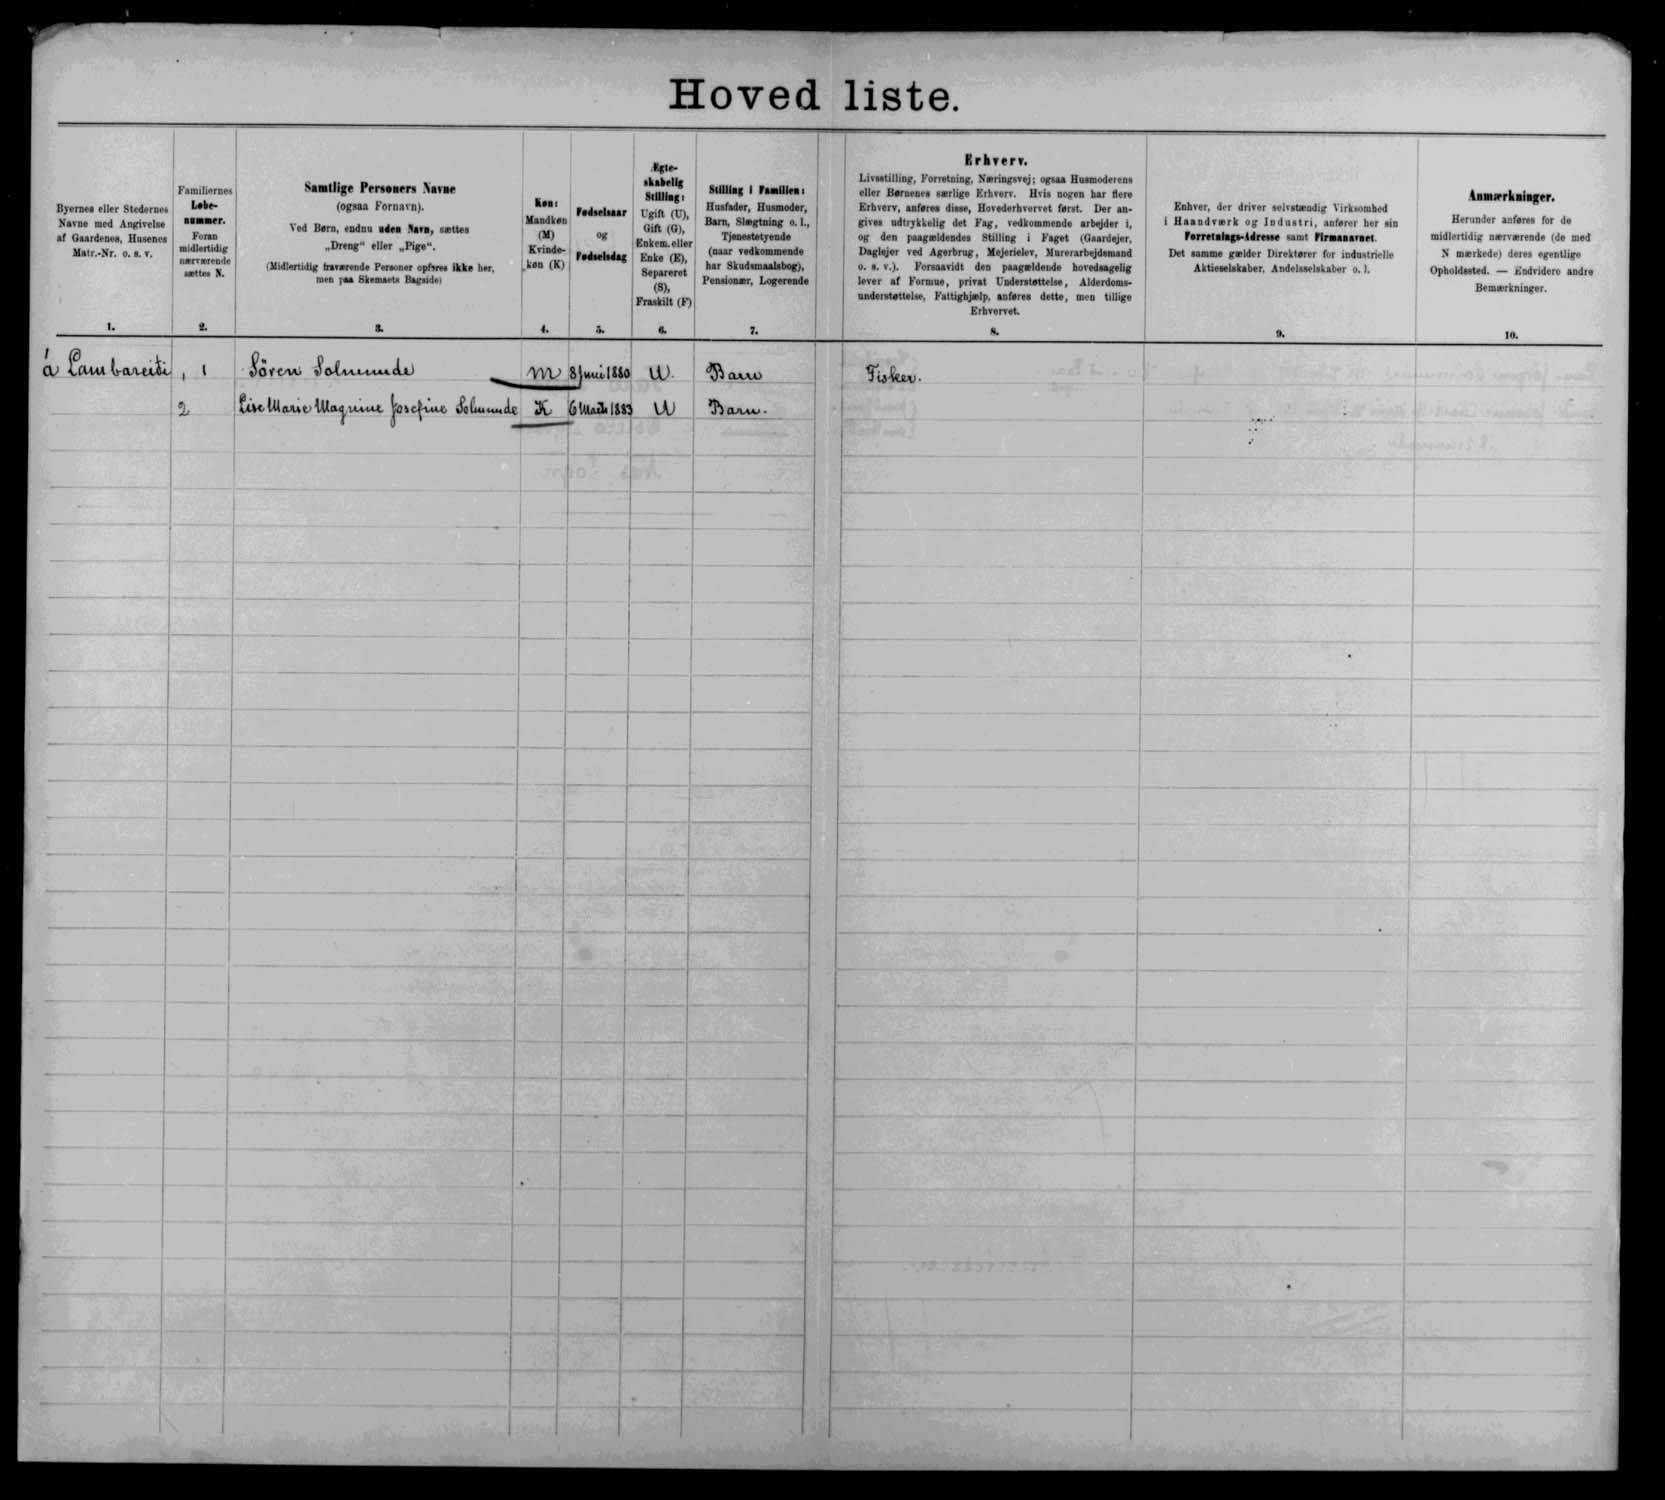 Hoved liste.
Byernes eller Stedernes
Navne med Angivelse
af Gaardenes, Husenes
Matr.-Nr. o. s. v.
1.
Familiernes
Løbe-
nummer.
Foran
midlertidig
nærværende
sættes N.
2.
Samtlige Personers Navne
(ogsaa Fornavn).
Ved Børn, endnu uden Navn, sættes
„Dreng“ eller „Pige“.
(Midlertidig fraværende Personer opføres ikke her,
men paa Skemaets Bagside)
3.
Køn:
Mandkøn
(M)
Kvinde-
køn (K)
4.
Fødselsaar
og
Fødselsdag
5.
Ægte-
skabelig
Stilling:
Ugift (U),
Gift (G),
Enkem. eller
Enke (E),
Separeret
(S),
Fraskilt (F)
6.
Stilling i Familien:
Husfader, Husmoder,
Barn, Slægtning o. l.,
Tjenestetyende
(naar vedkommende
har Skudsmaalsbog),
Pensionær, Logerende
7.
Erhverv.
Livsstilling, Forretning, Næringsvej; ogsaa Husmoderens
eller Børnenes særlige Erhverv. Hvis nogen har flere
Erhverv, anføres disse, Hovederhvervet først. Der an-
gives udtrykkelig det Fag, vedkommende arbejder i,
og den paagældendes Stilling i Faget (Gaardejer,
Daglejer ved Agerbrug, Mejerielev, Murerarbejdsmand
o. s. v.). Forsaavidt den paagældende hovedsagelig
lever af Formue, privat Understøttelse, Alderdoms-
understøttelse, Fattighjælp, anføres dette, men tillige
Erhvervet.
8.
Enhver, der driver selvstændig Virksomhed
i Haandværk og Industri, anfører her sin
Forretnings-Adresse samt Firmanavnet.
Det samme gælder Direktører for industrielle
Aktieselskaber, Andelsselskaber o. l.
9.
Anmærkninger.
Herunder anføres for de
midlertidig nærværende (de med
N mærkede) deres egentlige
Opholdssted. — Endvidere andre
Bemærkninger.
10.
á Lambareiði 1 Sören Solmunde M 8 Juni 1880 U. Barn Fisker.
2 Lise Marie Magrine Josefine Solmunde K 6 Marts 1883 U Barn.